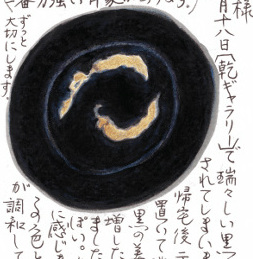 様
月十八日乾ギャラリーで瑞々しい黒
されてしまいま
帰宅後、テ
置いて
黒の美
増した
ました
ぽい
に感じ
の色と
が調和して
ずっと
大切にします。